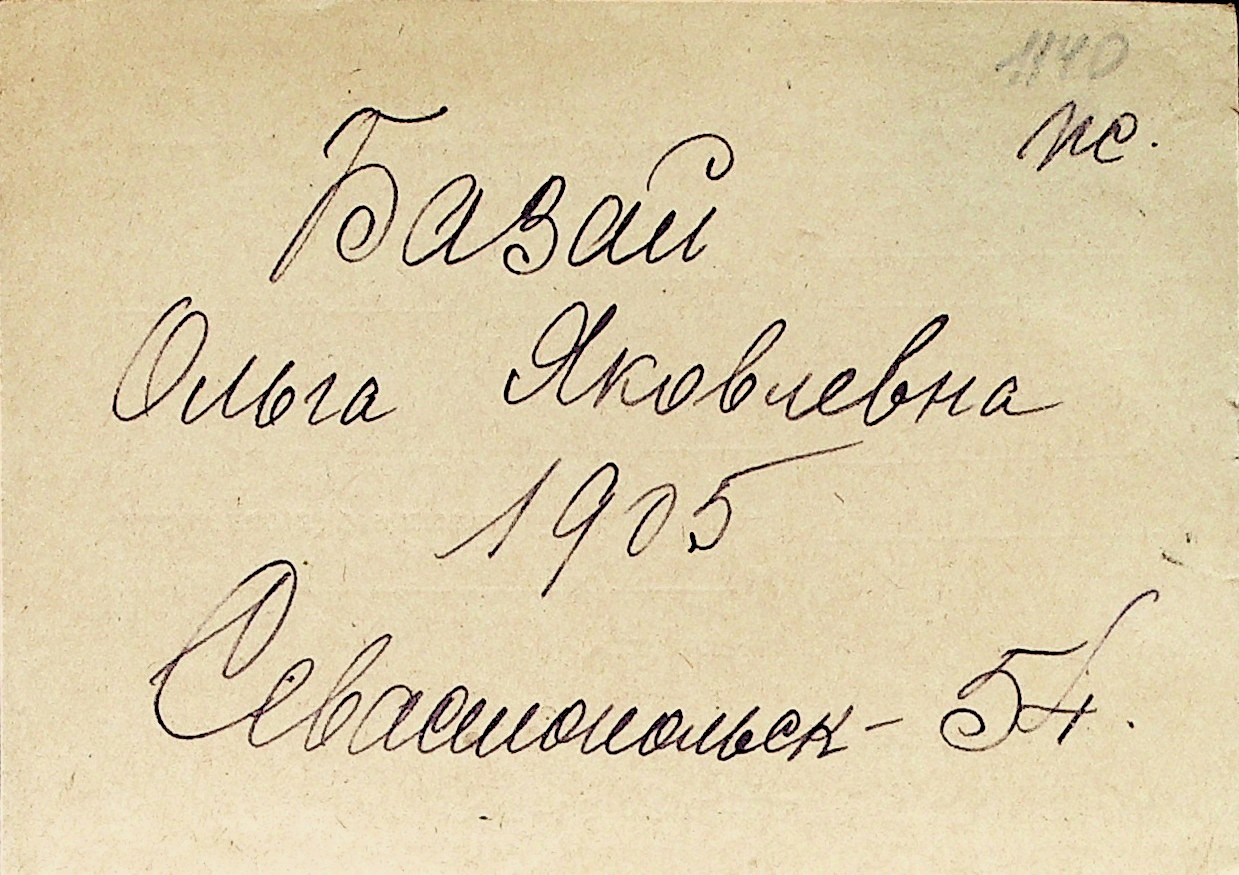 1140
пс.
Базай
Ольга Яковлевна
1905
Севастопольск - 54.